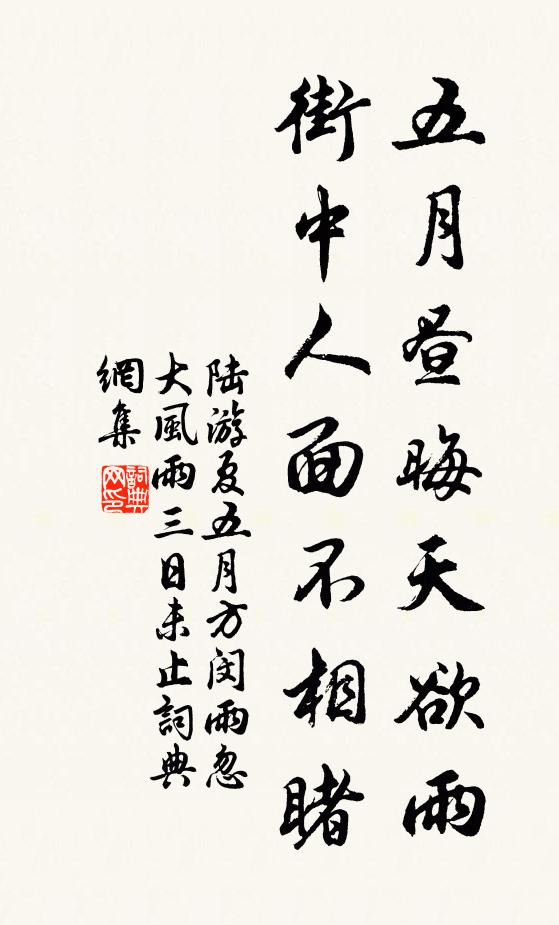 五月昼晦天欲雨
街中人面不相睹
陆游夏五月方闵雨忽
大風雨三日未止詞典
網集
詞典網印